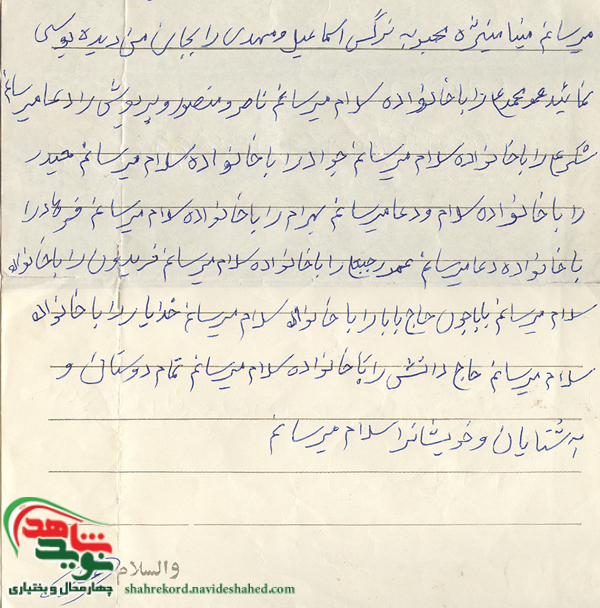 میرسانم مینا منیژه محبوبه نرگس اسماعیل و مهدی را بجان من دیده بوسی
نمائید عمو محمد را با خانواده سلام میرسانم ناصر و منصور و پرویش را دعا میرسانم
را با خانواده سلام میرسانم جواد را با خانواده سلام میرسانم حیدر
را با خانواده سلام و دعا میرسانم بهرام را با خانواده سلام میرسانم فرهاد را
با خانواده دعا میرسانم را با خانواده سلام میرسانم فریدون را با خانواده
سلام میرسانم باباجون حاج بابا را با خانواده سلام میرسانم خدایار را با خانواده
سلام میرسانم حاج دانشی را با خانواده سلام میرسانم تمام دوستان و
آشنایان و خویشانرا سلام میرسانم
والسلام
نوید شاهد
چهارمحال و بختیاری
shahrekord.navideshahed.com